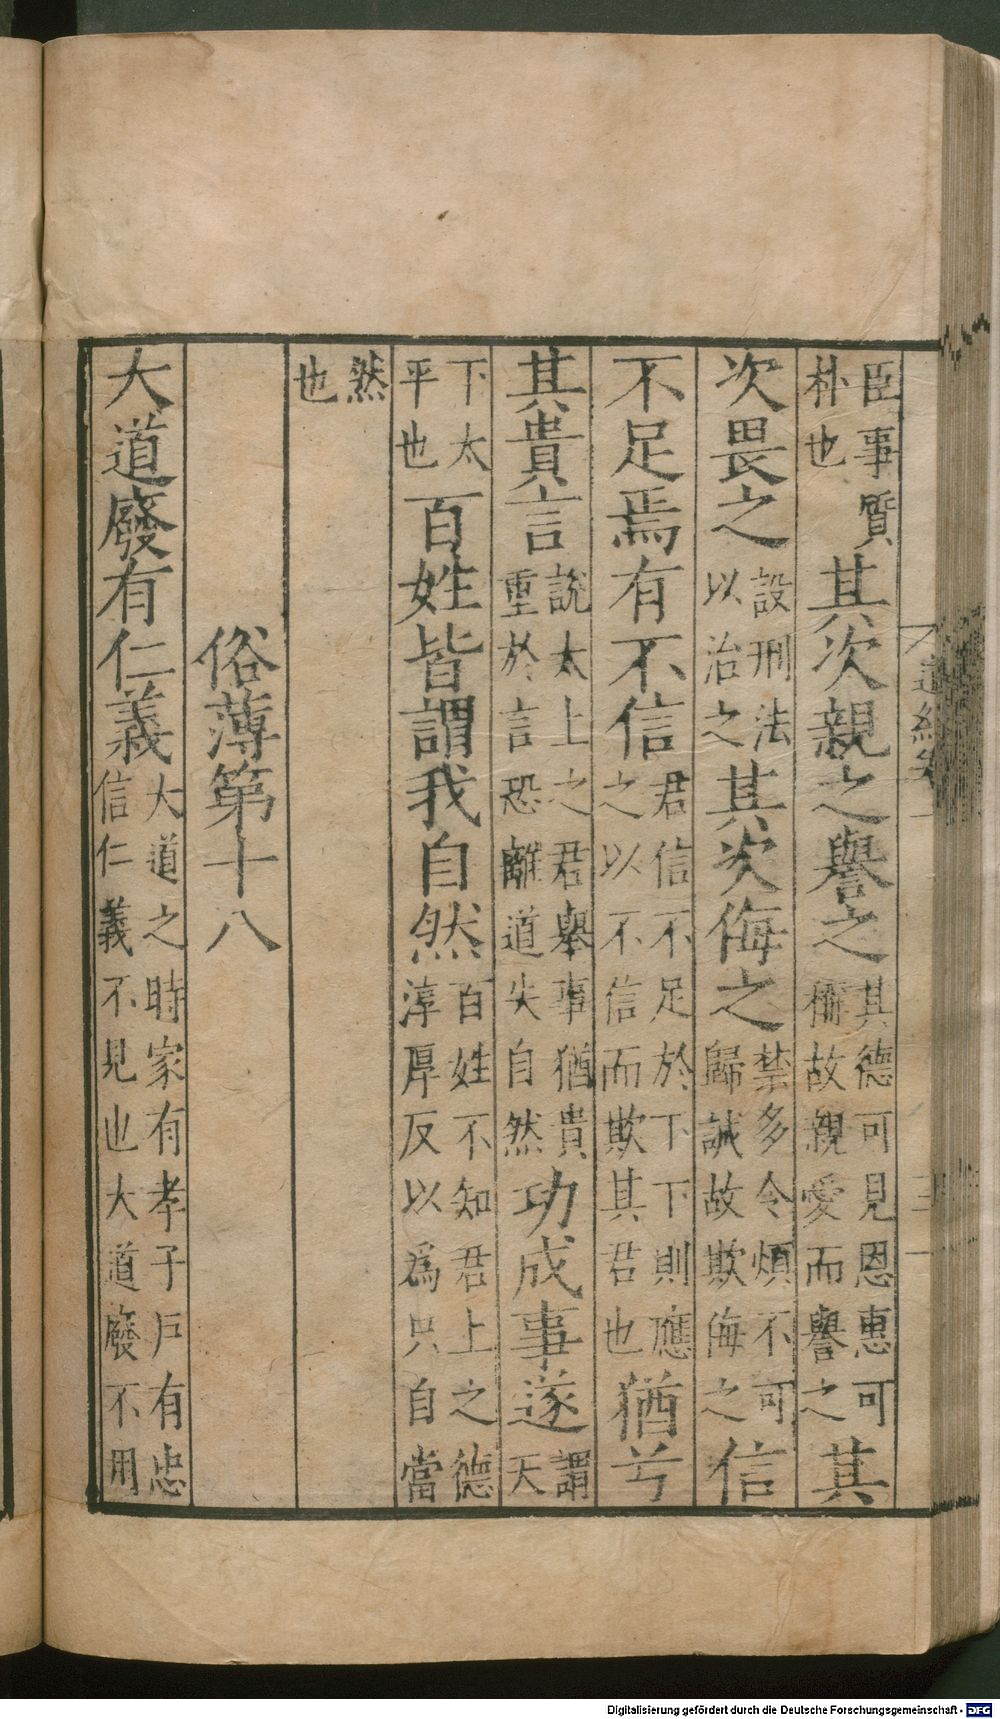 臣事質朴也其次親之譽之其德可見恩惠可稱故親愛而譽之其
次畏之設刑法以治之其次侮之禁多令煩不可歸誠故欺侮之信
不足焉有不信君信不足於下下則應之以不信而欺其君也猶兮
其貴言說太上之君舉事猶貴重於言恐離道失自然功成事遂謂天
下太平也百姓皆謂我自然百姓不知君上之德淳厚反以爲只自當
然也
俗薄第十八
大道廢有仁義大道之時家有孝子戶有忠信仁義不見也大道廢不用
Digitalisierung gefördert durch die Deutsche Forschungsgemeinschaft - DFG